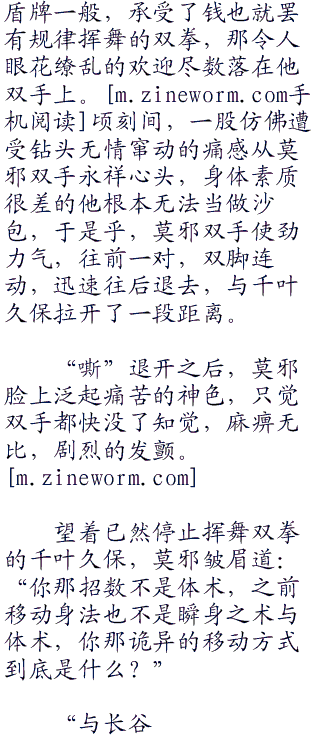 盾牌一般，承受了钱也就罢
有规律挥舞的双拳，那令人
眼花缭乱的欢迎尽数落在他
双手上。[m.zineworm.com手
机阅读]顷刻间，一股仿佛遭
受钻头无情窜动的痛感从莫
邪双手永祥心头，身体素质
很差的他根本无法当做沙
包，于是乎，莫邪双手使劲
力气，往前一对，双脚连
动，迅速往后退去，与千叶
久保拉开了一段距离。
“嘶”退开之后，莫邪
脸上泛起痛苦的神色，只觉
双手都快没了知觉，麻痹无
比，剧烈的发颤。
[m.zineworm.com]
望着已然停止挥舞双拳
的千叶久保，莫邪皱眉道：
“你那招数不是体术，之前
移动身法也不是瞬身之术与
体术，你那诡异的移动方式
到底是什么？”
“与长谷